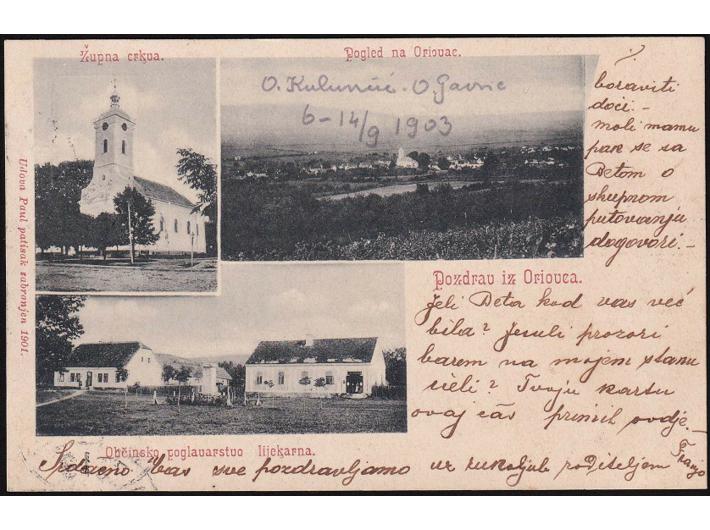 Župna crkva.
Pogled na Oriovac.
O. Kulunčić - O. Gavric
6-14/9 1903
Udova Paul patisak zabranjen 1901.
boraviti
doći. -
moli mamu
pak se sa
Detom o
skupnom
putovanju
dogovori. -
Pozdrav iz Oriovca.
Jeli Deta kod vas već
bila? Jesuli prozori
barem na mojem stanu
cieli? Tvoju kartu
ovaj čas primil ovdje. -
Općinsko poglavarstvo lijekarna.
Srdačno Vas sve pozdravljamo uz rukoljub roditeljem
Franjo